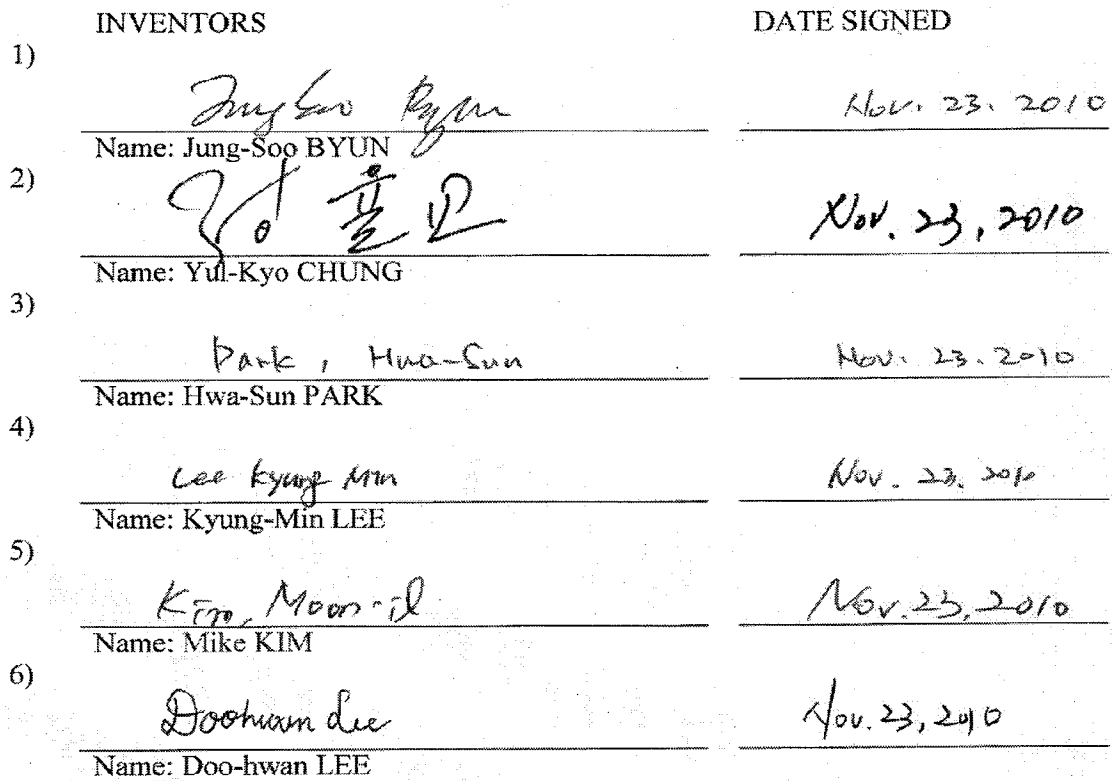 INVENTORS DATE SIGNED
1)
Jung Soo Byun Nov. 23. 2010
Name: Jung-Soo BYUN
2)
정율교 Nov. 23, 2010
Name: Yul-Kyo CHUNG
3)
Park, Hwa-Sun Nov. 23. 2010
Name: Hwa-Sun PARK
4)
Lee Kyung Min Nov. 23, 2010
Name: Kyung-Min LEE
5)
Kim, Moon-il Nov. 23, 2010
Name: Mike KIM
6)
Doohwan Lee Nov. 23, 2010
Name: Doo-hwan LEE